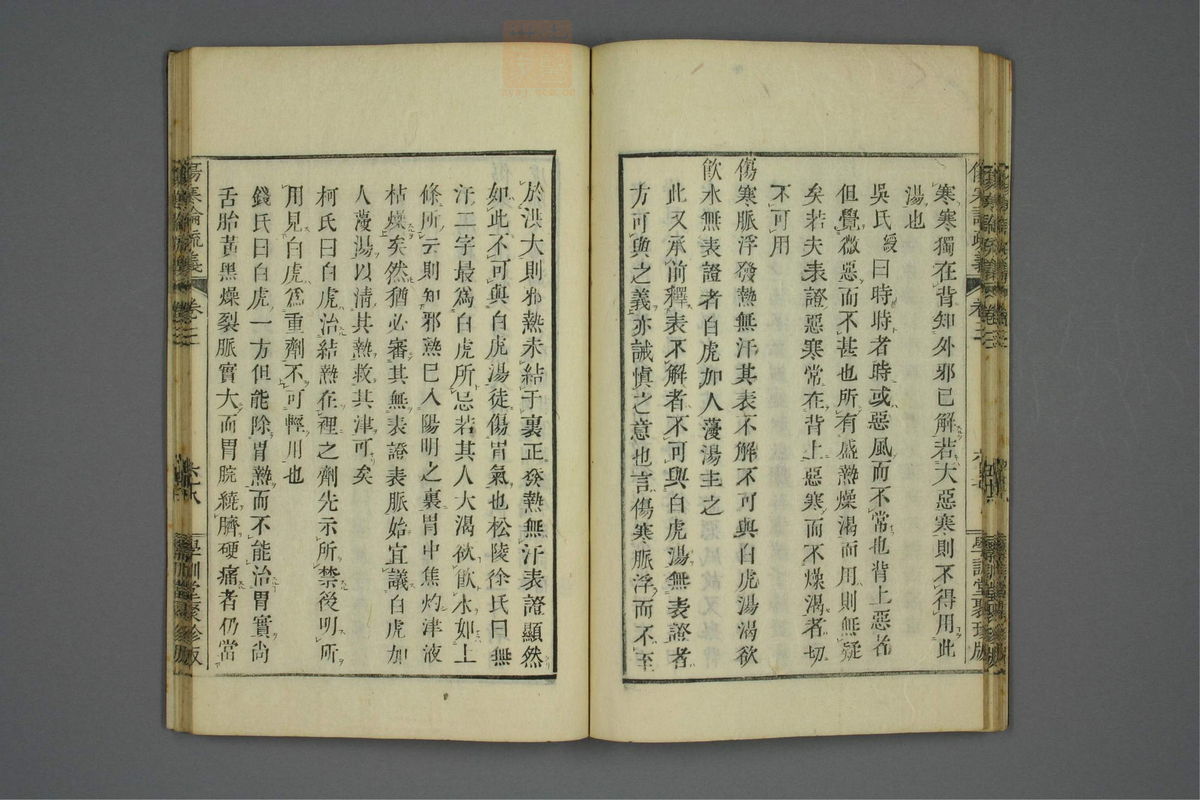 寒寒獨在背知外邪已解若大惡寒則不得用此
湯也
吳氏綬曰時時者時或惡風而不常也背上惡者
但覺微惡而不甚也所有盛熱燥渴而用則無疑
矣若夫表證惡寒常在背上惡寒而不燥渴者切
不可用
傷寒脈浮發熱無汗其表不解不可與白虎湯渴欲
飲水無表證者白虎加人薓湯主之
此又承前釋表不解者不可與白虎湯無表證者
方可與之義亦誡慎之意也言傷寒脈浮而不至
於洪大則邪熱未結于裏正發熱無汗表證顯然
如此不可與白虎湯徒傷胃氣也松陵徐氏曰無
汗二字最爲白虎所忌若其人大渴欲飲水如上
條所云則知邪熱已入陽明之裏胃中焦灼津液
枯燥矣然猶必審其無表證表脈始宜議白虎加
人薓湯以清其熱救其津可矣
柯氏曰白虎治結熱在裡之劑先示所禁後明所
用見白虎爲重劑不可輕用也
錢氏曰白虎一方但能除胃熱而不能治胃實尙
舌胎黃黑燥裂脈實大而胃脘繞臍硬痛者仍當
傷寒論疏義 卷三
學訓堂聚珍版